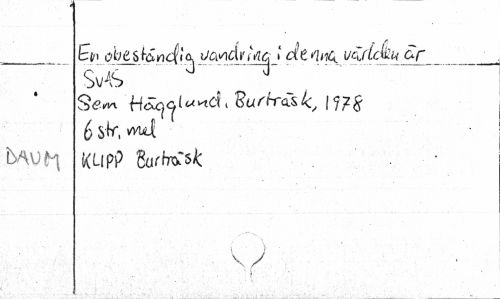 En obeständig vandring i denna världen är
SvAS
Sem Hägglund, Burträsk, 1978
6 str. mel
DAUM KLIPP Burträsk